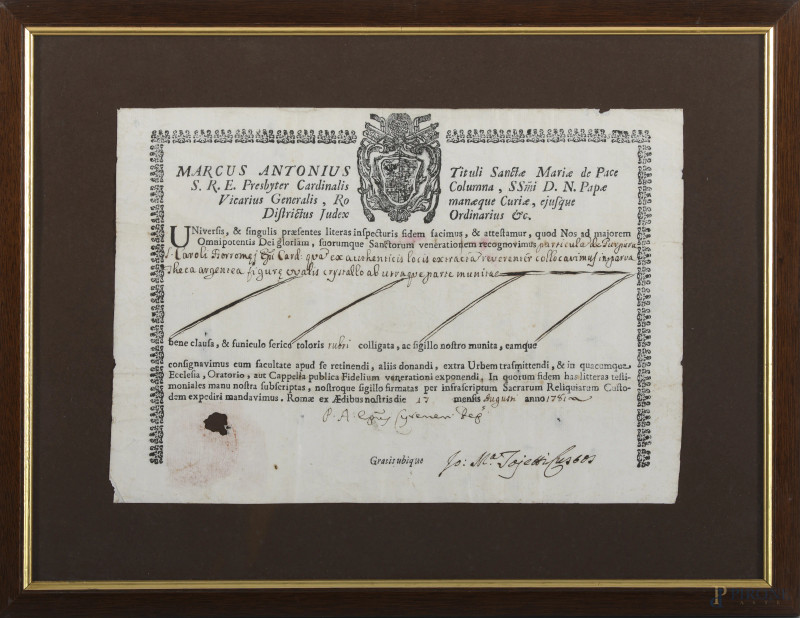 MARCUS ANTONIUS Tituli Sanctæ Mariæ de Pace
S. R. E. Presbyter Cardinalis Columna, SSmi D. N. Papæ
Vicarius Generalis, Ro manæque Curiæ, ejusque
Districtus Judex Ordinarius &c.
UNiversis, & singulis præsentes literas inspecturis fidem facimus, & attestamur, quod Nos ad majorem
Omnipotentis Dei gloriam, suorumque Sanctorum venerationem recognovimus particula de Purpura
S. Caroli Borromej Epi Card. quas ex authenticis locis extracta reverenter collocavimus in parva
theca argentea figuræ ovalis crystallo ab utraque parte munitae
bene clausa, & funiculo serico coloris rubri colligata, ac sigillo nostro munita, eamque
consignavimus cum facultate apud se retinendi, aliis donandi, extra Urbem trasmittendi, & in quacumque
Ecclesia, Oratorio, aut Cappella publica Fidelium venerationi exponendi, In quorum fidem has litteras testi-
moniales manu nostra subscriptas, nostroque sigillo firmatas per infrascriptum Sacrarum Reliquiarum Custo-
dem expediri mandavimus. Romæ ex Ædibus nostris die 17 mensis Augusti anno
Gratis ubique Jo: Ma.